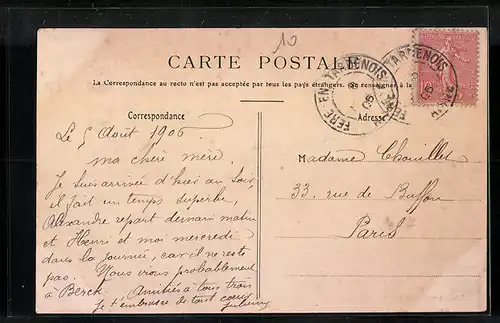 10
CARTE POSTALE
La Correspondance au recto n'est pas acceptée par tous les pays étrangers. Se renseigner à la
FERE EN TARDENOIS
AISNE
FERE EN TARDENOIS
AISNE
Correspondance
Le 5 Aout 1906
ma chère mère.
Je suis arrivée d'hier au soir,
il fait un temps superbe,
Alexandre repart demain matin
et Henri et moi mercredi
dans la journée, car il ne reste
pas. Nous irons probablement
à Berck. Amitiés à tous trois
je t'embrasse de tout coeur
Adresse
Madame Chouillet
33. rue de Buffon
Paris